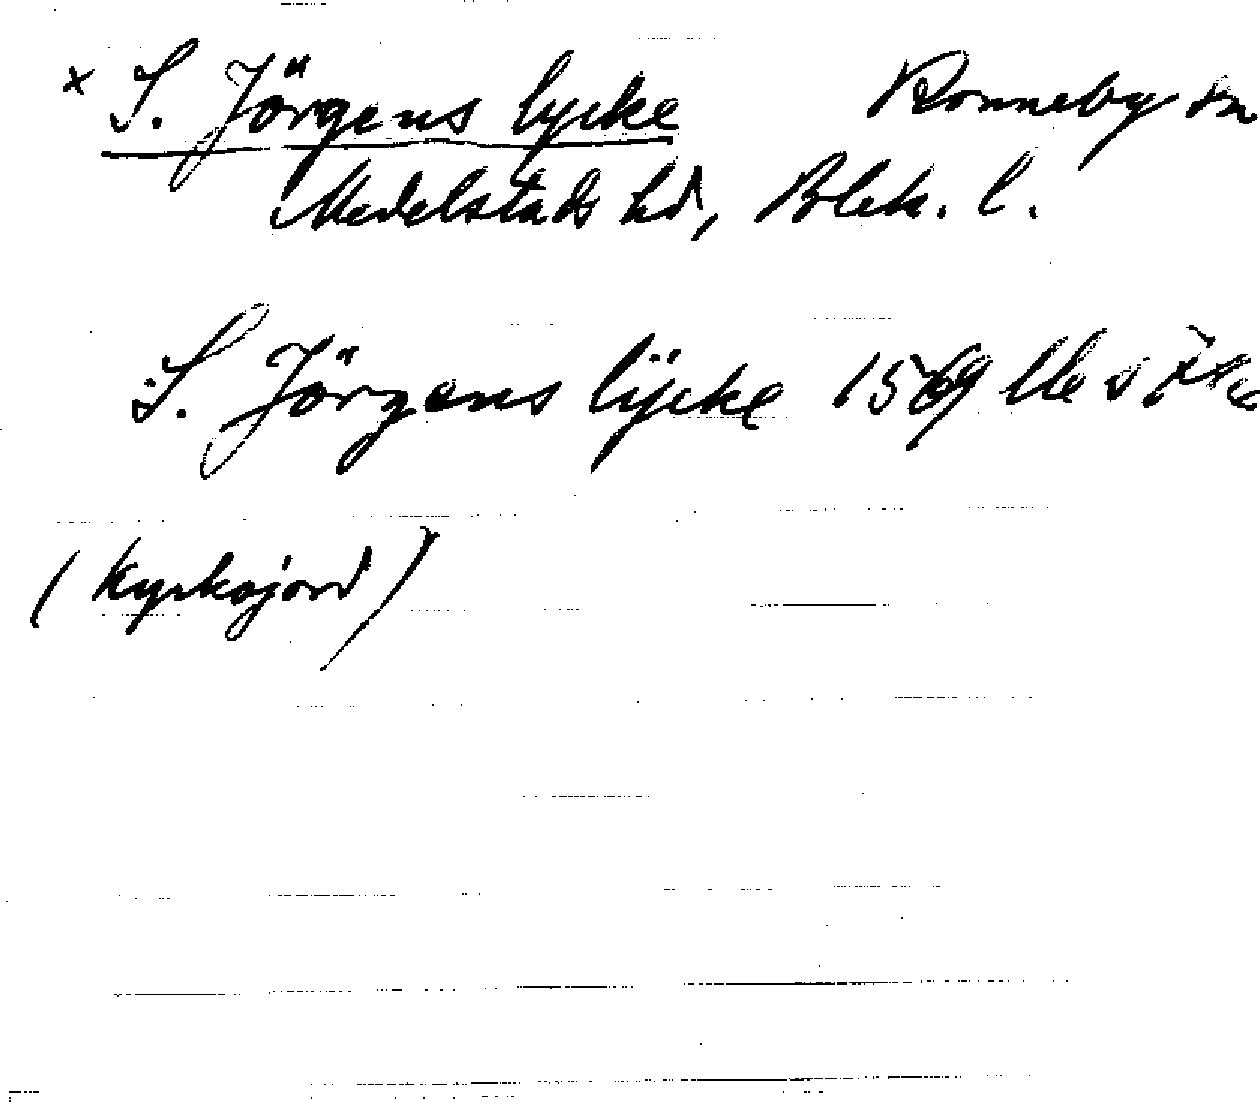 x S. Jörgens lycke Ronneby sn
Medelstads hd, Blek. l.
S. Jörgens lÿcke 1569 LLe s
(Kyrkojord)